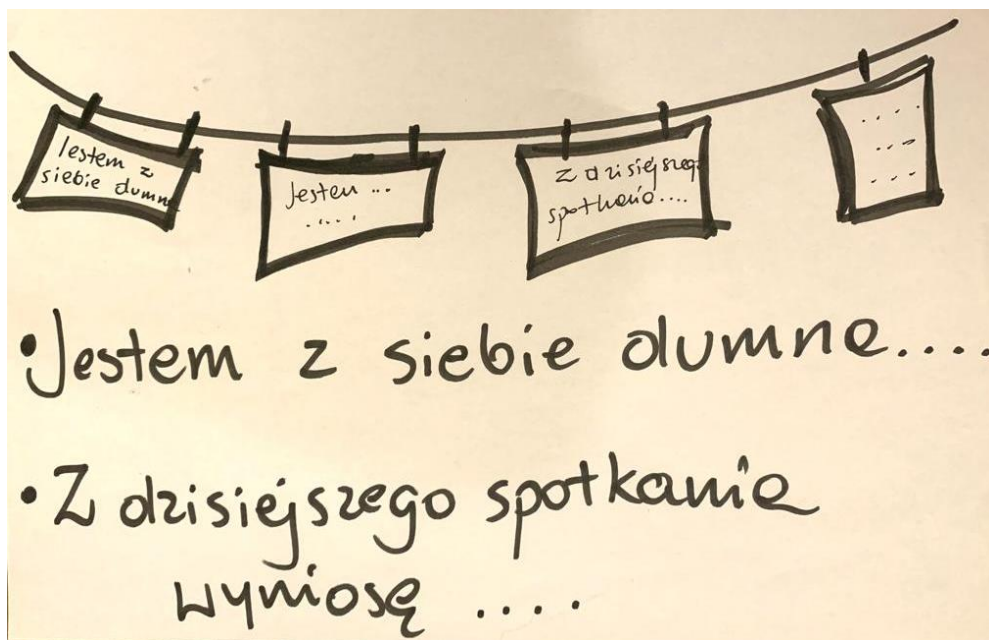 Jestem z
siebie dumna
Jestem ...
.....
Z dzisiejszego
spotkania....
....
...
...
• Jestem z siebie dumna....
• Z dzisiejszego spotkania
wyniosę ....